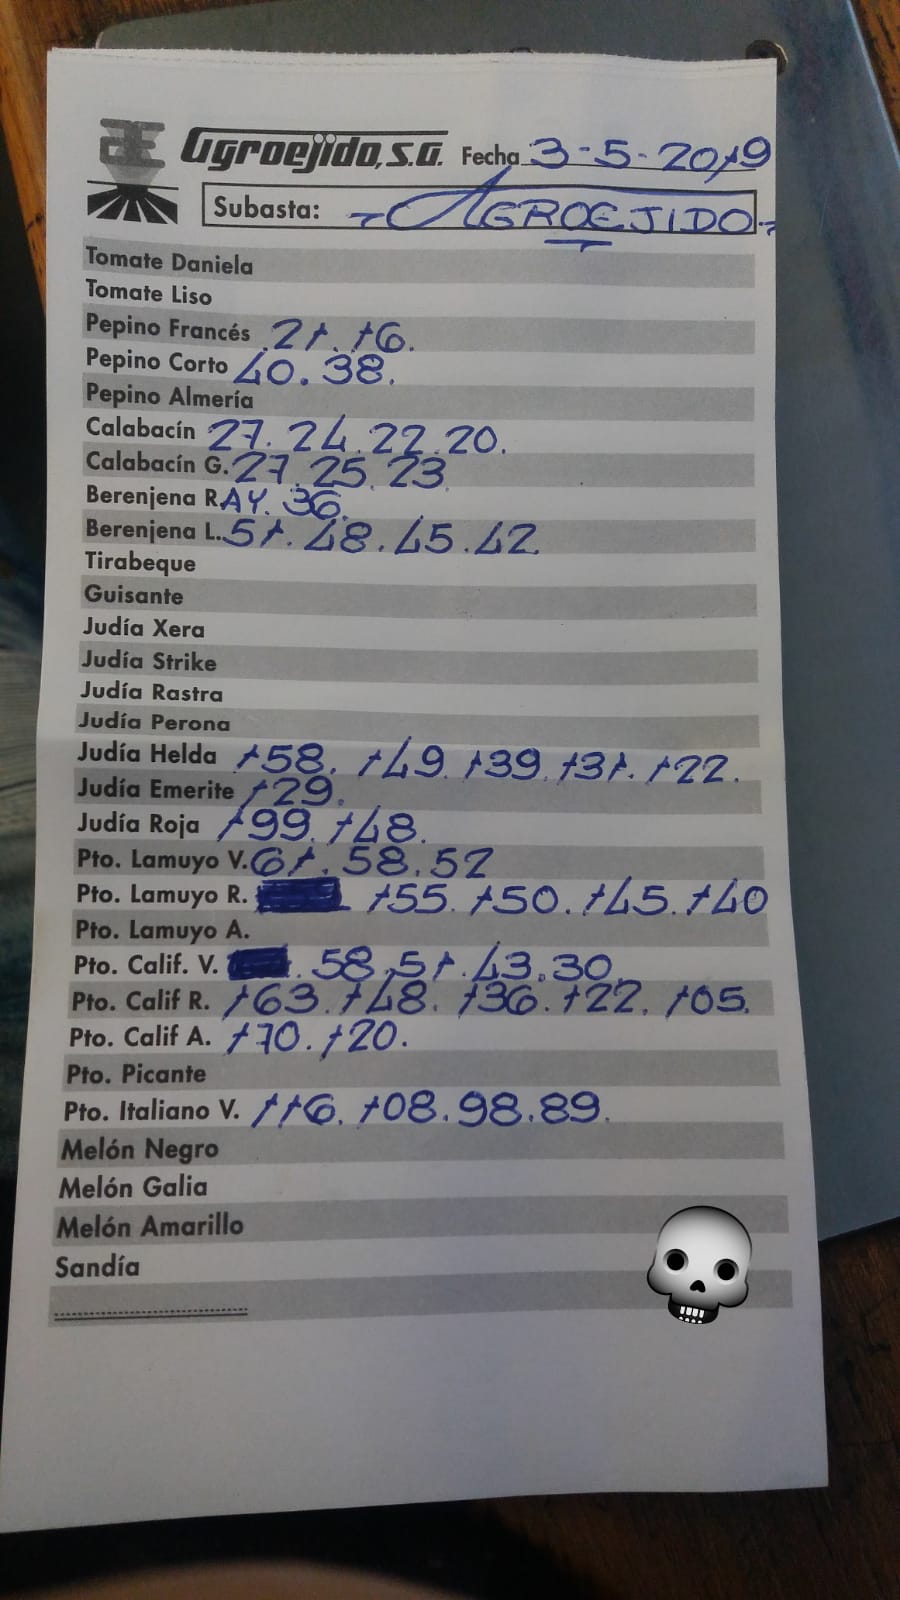 Agroejido, S.A. Fecha 3-5-2019
Subasta: AGROEJIDO
Tomate Daniela
Tomate Liso
Pepino Francés 21. 16.
Pepino Corto 40. 38.
Pepino Almería
Calabacín 27. 24. 22. 20.
Calabacín G. 27. 25. 23
Berenjena RAY. 36.
Berenjena L. 51. 48. 45. 42
Tirabeque
Guisante
Judía Xera
Judía Strike
Judía Rastra
Judía Perona
Judía Helda 158. 149. 139. 131. 122.
Judía Emerite 129.
Judía Roja 199. 148.
Pto. Lamuyo V. 61. 58. 52
Pto. Lamuyo R. 155. 150. 145. 140
Pto. Lamuyo A.
Pto. Calif. V. 58. 51. 43. 30.
Pto. Calif R. 163. 148. 136. 122. 105.
Pto. Calif A. 170. 120.
Pto. Picante
Pto. Italiano V. 116. 108. 98. 89.
Melón Negro
Melón Galia
Melón Amarillo
Sandía